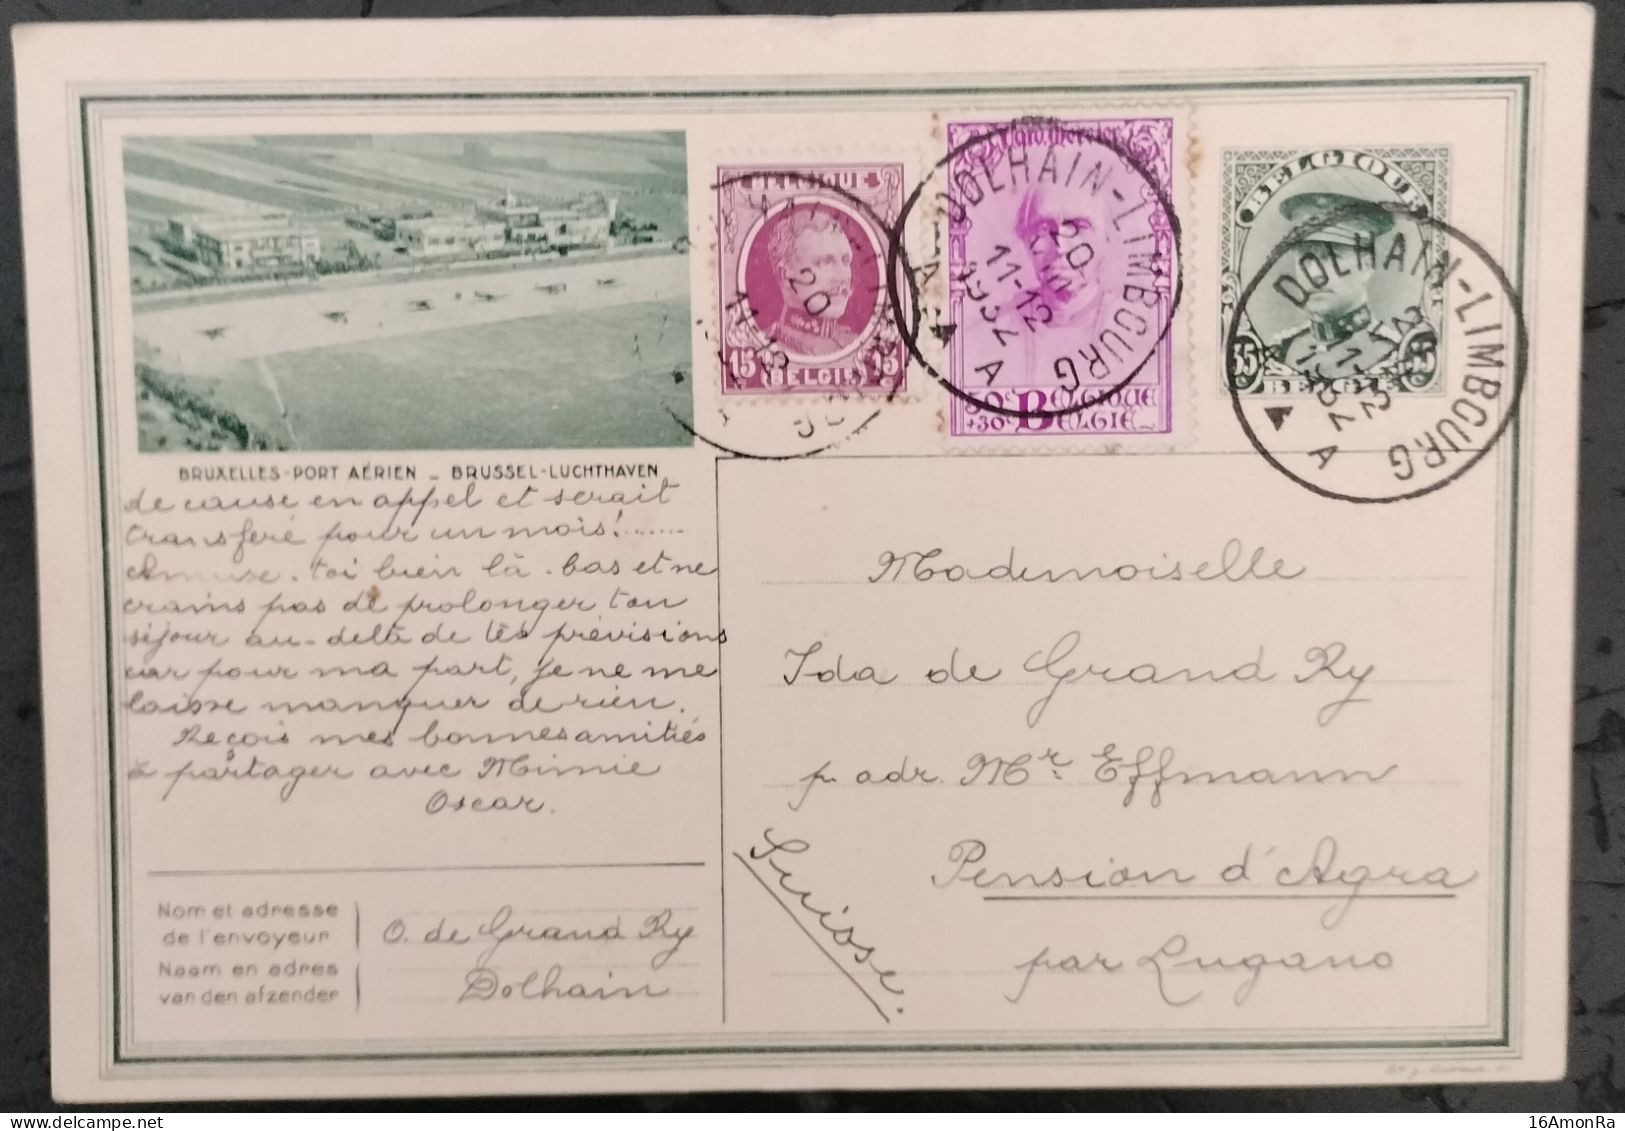 BELGIQUE
15 15
BELGIË
Card. Mercier
50c BELGIQUE
+30c BELGIË
BELGIQUE
35 35
BELGIË
DOLHAIN-LIMBOURG
20
11-12
1932
A A
DOLHAIN-LIMBOURG
A A
BRUXELLES-PORT AÉRIEN _ BRUSSEL-LUCHTHAVEN
de cause en appel et serait
transféré pour un mois!.......
Amuse-toi bien là-bas et ne
crains pas de prolonger ton
séjour au-delà de tes prévisions
car pour ma part, je ne me
laisse manquer de rien.
Reçois mes bonnes amitiés
à partager avec Mimie
Oscar.
Mademoiselle
Ida de Grand Ry
p. adr. Mr. Effmann
Pension d'Agra
par Lugano
Suisse.
Nom et adresse
de l'envoyeur
Naam en adres
van den afzender
O. de Grand Ry
Dolhain
16AmonRa